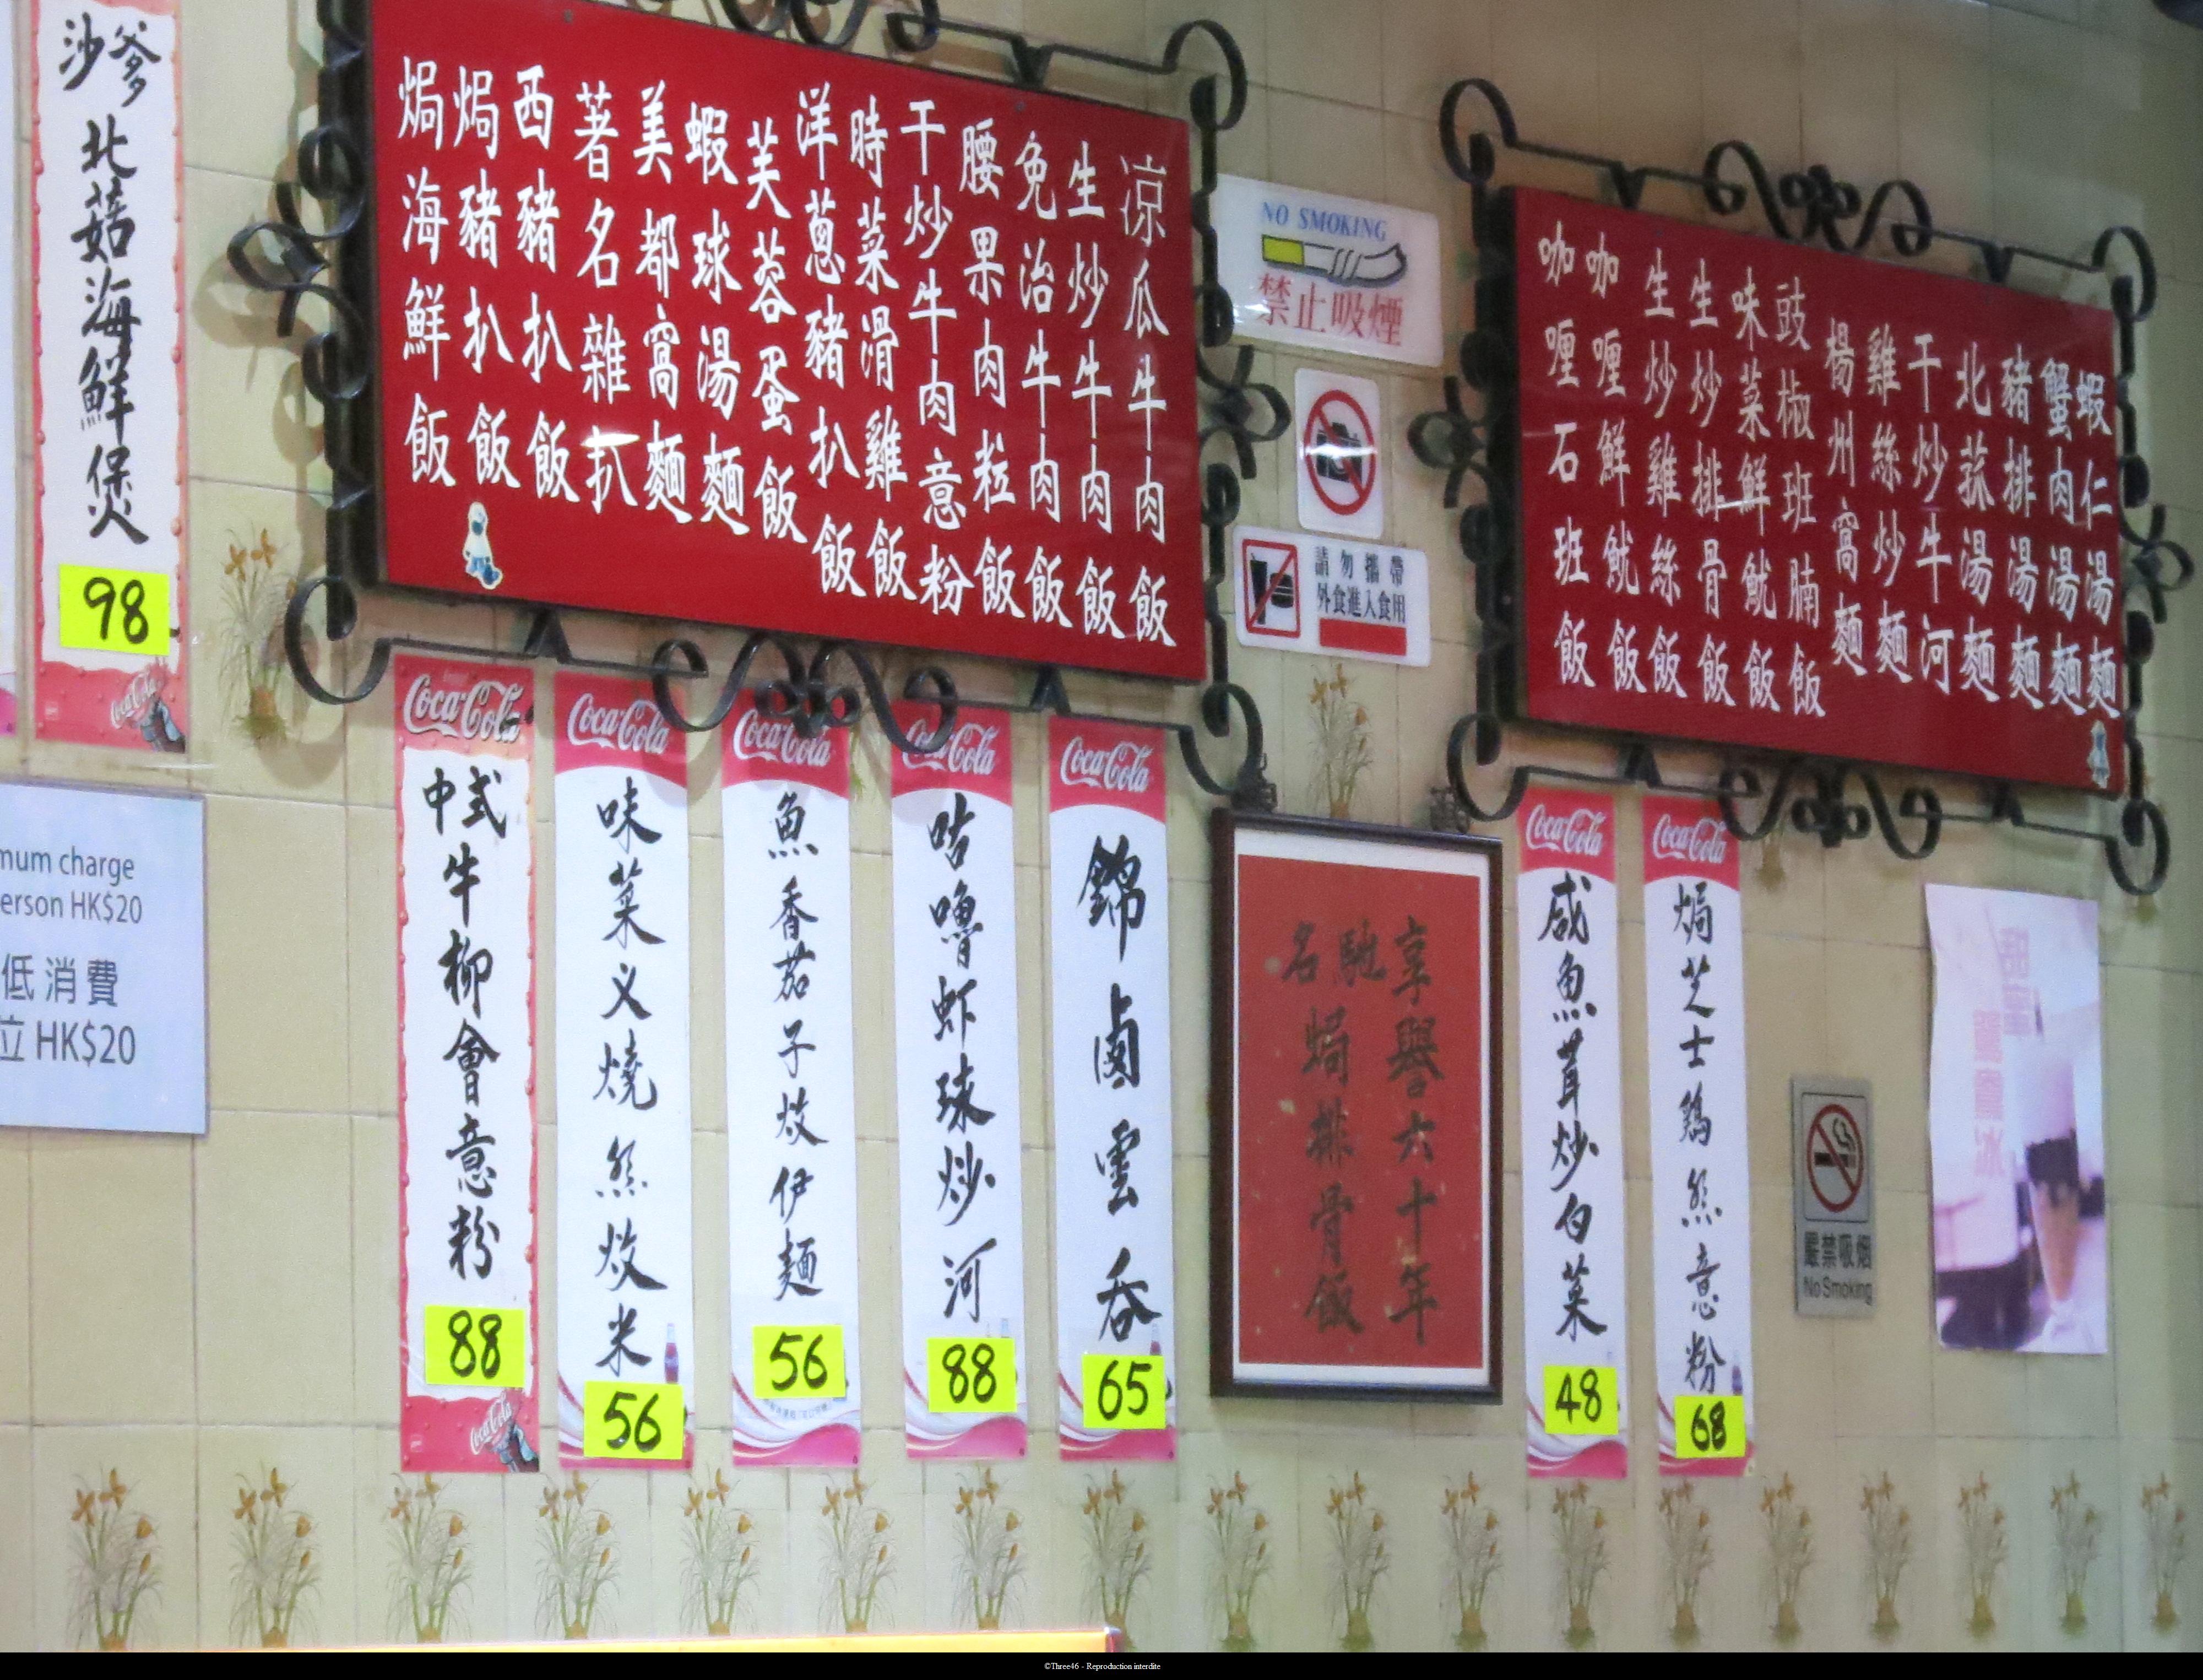 沙爹北菇海鮮煲
98
焗海鮮飯
焗豬扒飯
西豬扒飯
著名雜扒
美都窩麵
蝦球湯麵
芙蓉蛋飯
洋蔥豬扒飯
時菜滑雞飯
干炒牛肉意粉
腰果肉粒飯
免治牛肉飯
生炒牛肉飯
凉瓜牛肉飯
NO SMOKING
禁止吸煙
請勿攜帶
外食進入食用
咖喱石班飯
咖喱鮮魷飯
生炒雞絲飯
生炒排骨飯
味菜鮮魷飯
豉椒班腩飯
楊州窩麵
雞絲炒麵
干炒牛河
北菰湯麵
豬排湯麵
蟹肉湯麵
蝦仁湯麵
mum charge
erson HK$20
低消費
立 HK$20
Coca-Cola
中式牛柳會意粉
88
Coca-Cola
Coca-Cola
味菜义燒熊炆米
56
Coca-Cola
魚香茄子炆伊麵
56
Coca-Cola
咕嚕虾球炒河
88
Coca-Cola
錦鹵雲吞
65
享譽六十年
馳名焗排骨飯
Coca-Cola
咸魚茸炒白菜
48
Coca-Cola
焗芝士鷄熊意粉
68
嚴禁吸烟
No Smoking
©Three46 - Reproduction interdite